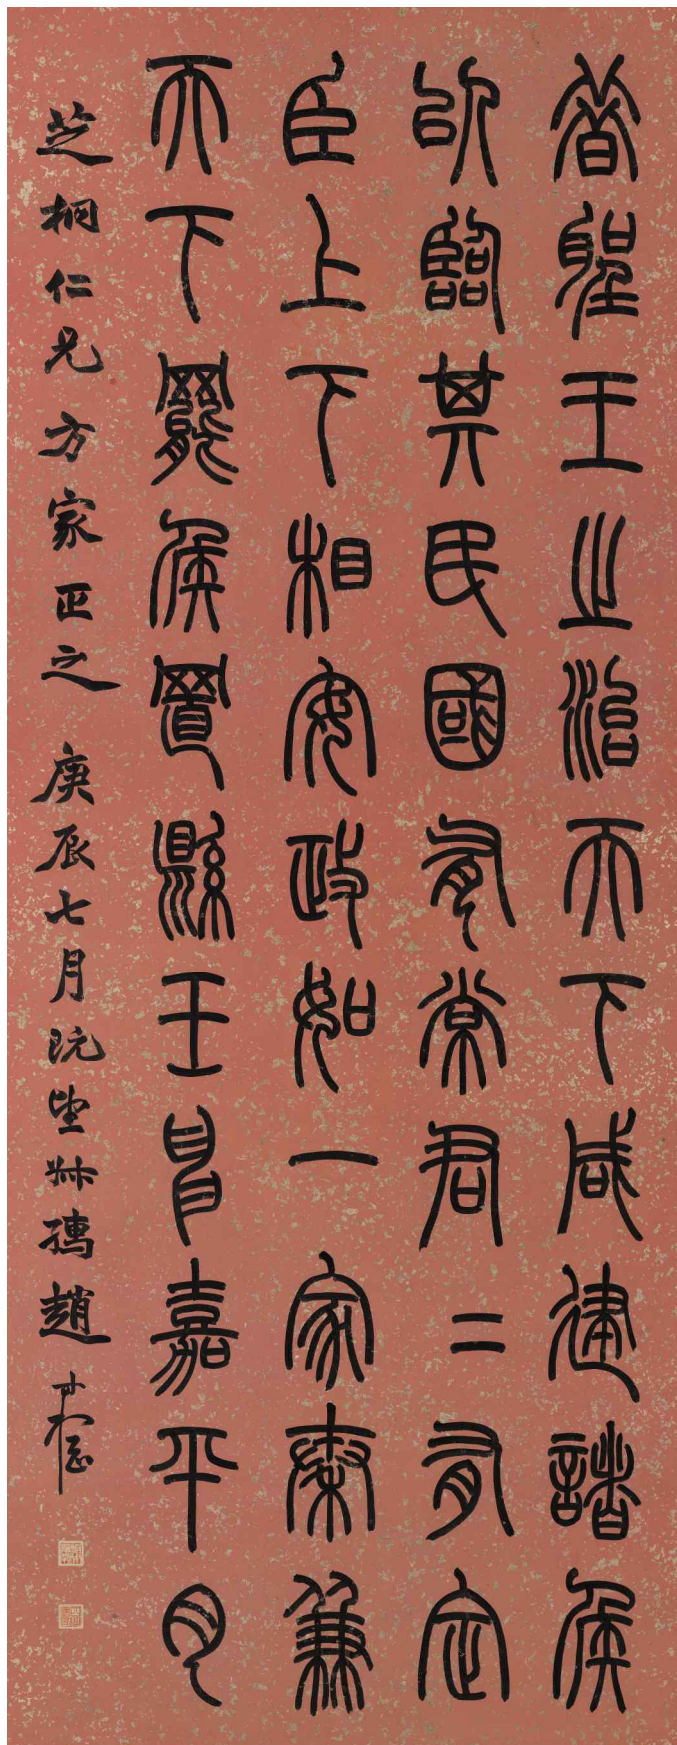 昔聖王之治天下咸建諸侯
以臨其民國有常君二有定
臣上下相安政如一家秦兼
天下罷侯置縣王嘉平月
芝桐仁兄方家正之 庚辰七月既望叔孺趙時棡